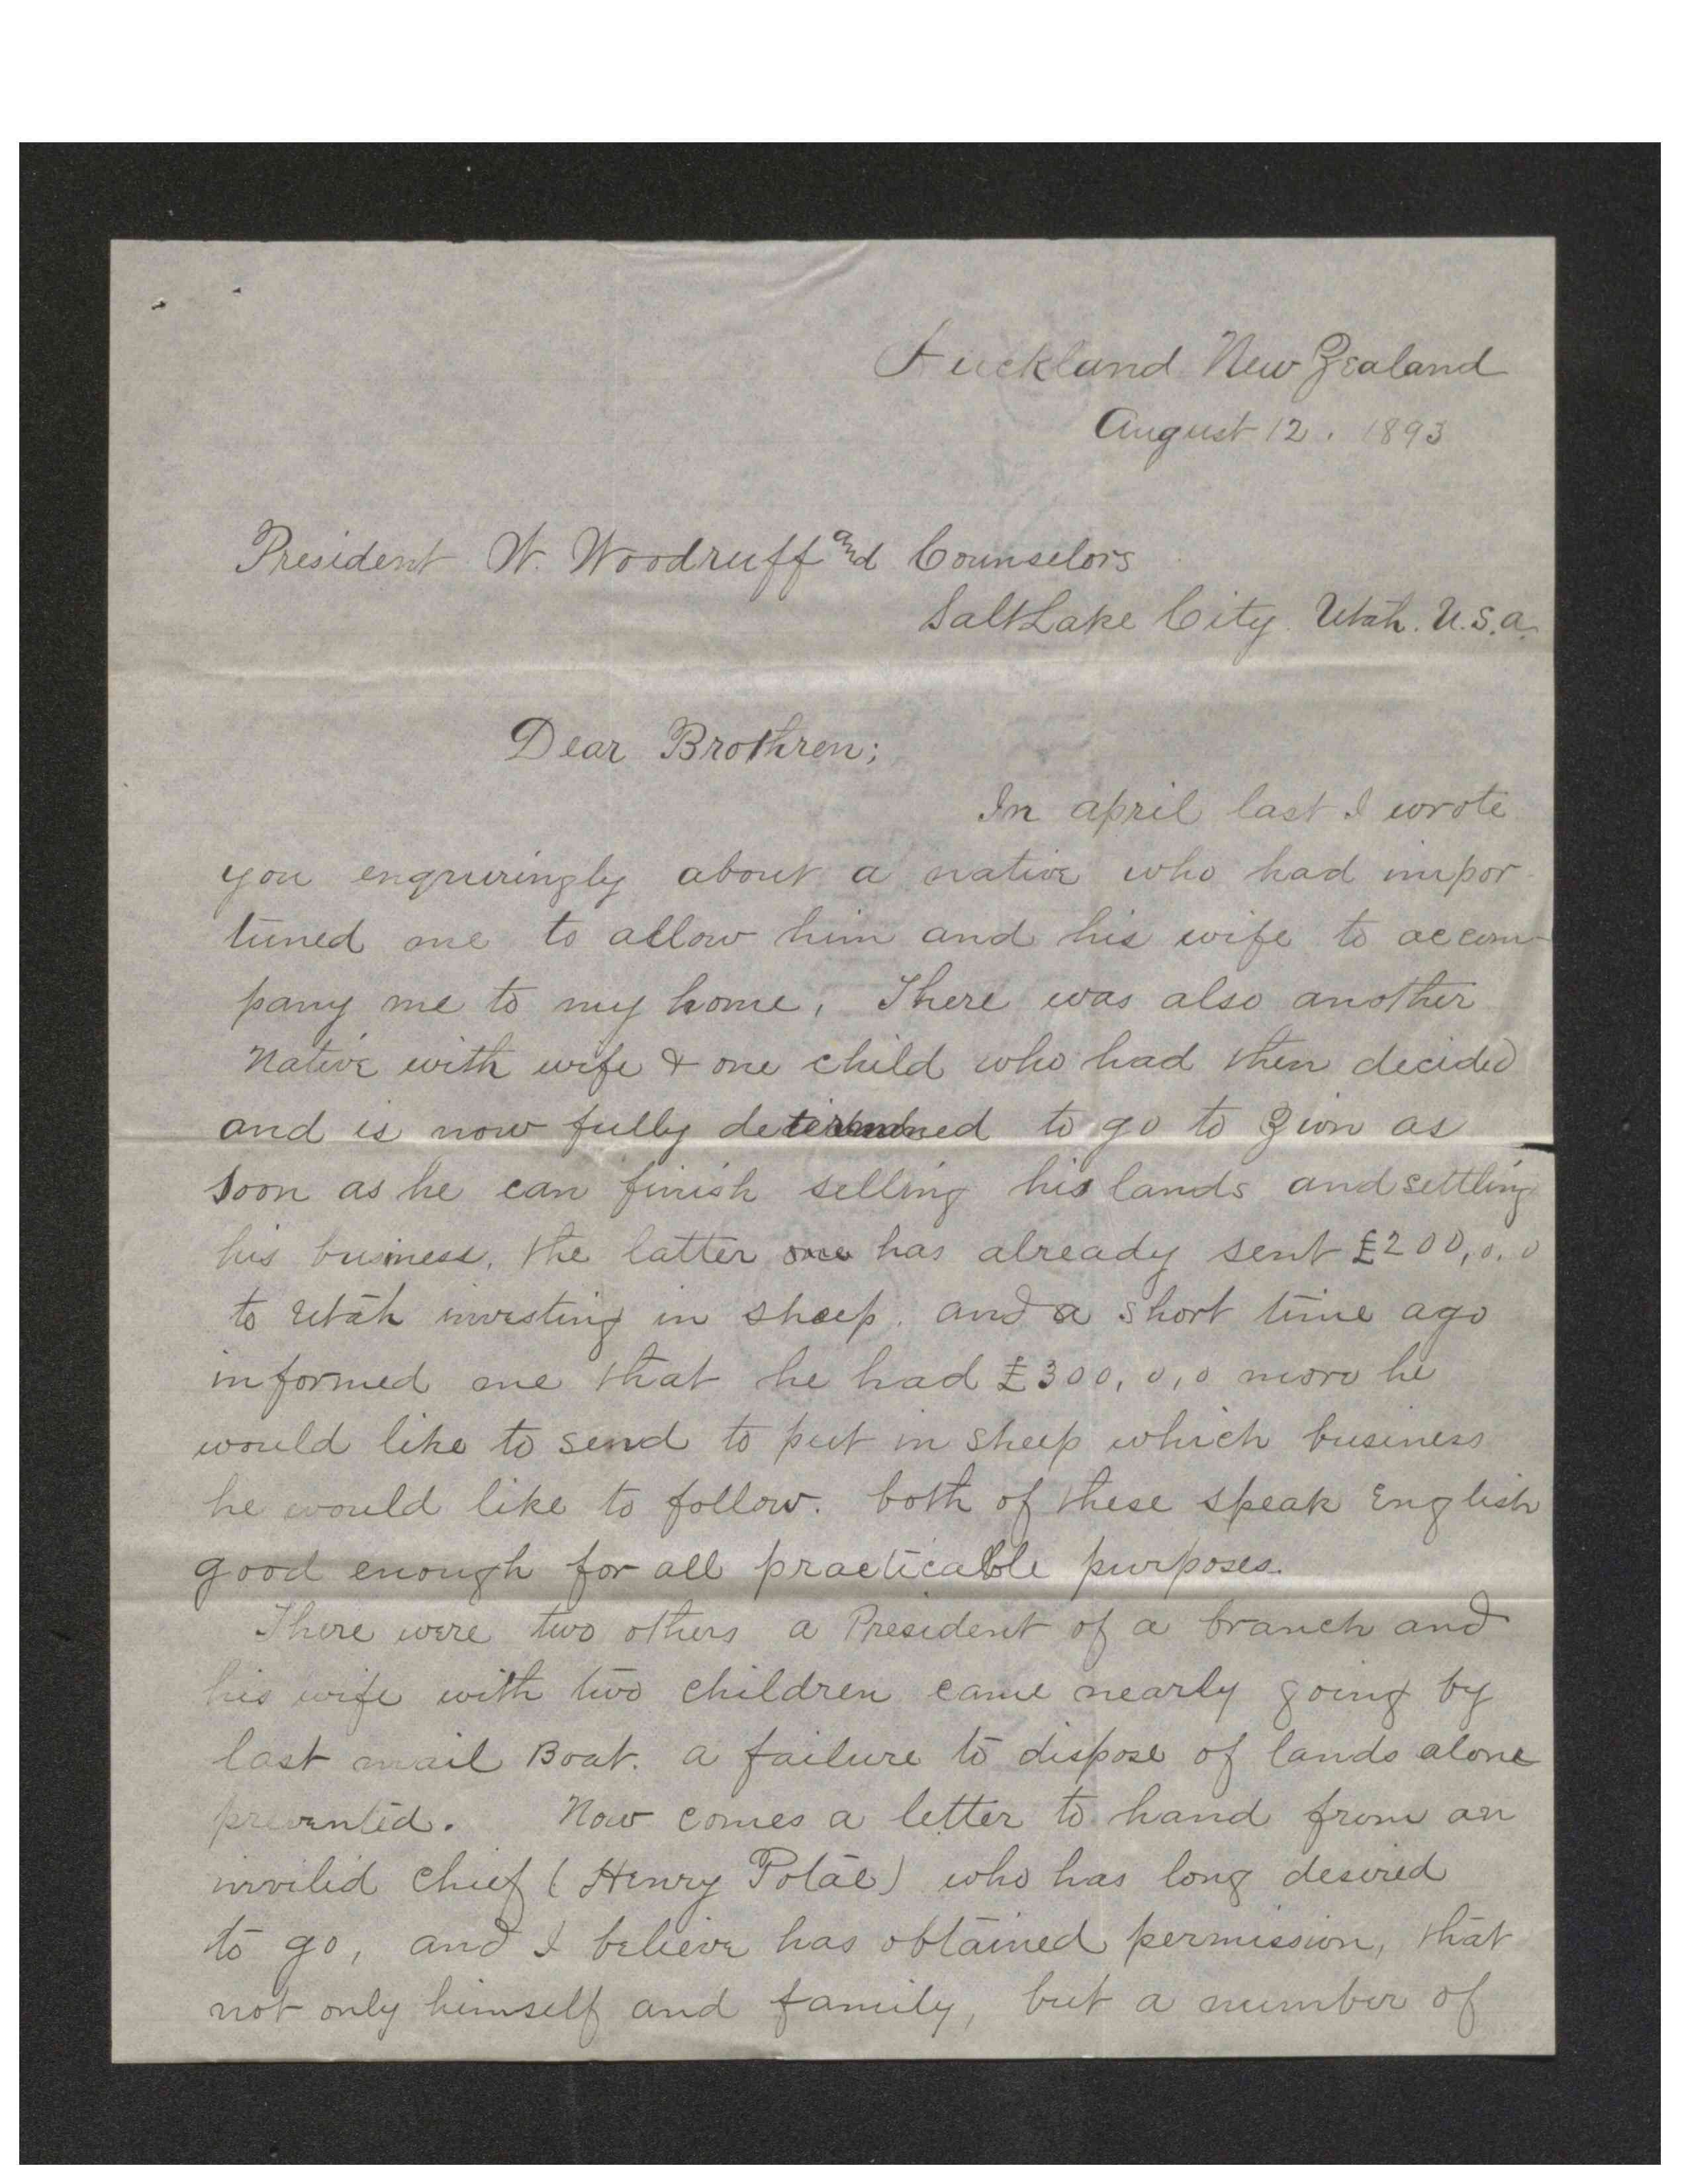 Auckland New Zealand
August 12. 1893
President W. Woodruff and Counselors
Salt Lake City. Utah. U.S.A.
Dear Brothren;
In april last I wrote
you enquiringly about a native who had impor-
tuned me to allow him and his wife to accom-
pany me to my home, There was also another
Native with wife & one child who had then decided
and is now fully determined to go to Zion as
soon as he can finish selling his lands and settling
his business, the latter one has already sent £200,0.0
to Utah investing in sheep. and a short time ago
informed me that he had £300,0,0 more he
would like to send to put in sheep which business
he would like to follow. both of these speak English
good enough for all practicable purposes.
There were two others a President of a branch and
his wife with two children came nearly going by
last mail Boat. a failure to dispose of lands alone
prevented. Now comes a letter to hand from an
invilid chief (Henry Potae) who has long desired
to go, and I believe has obtained permission, that
not only himself and family, but a number of